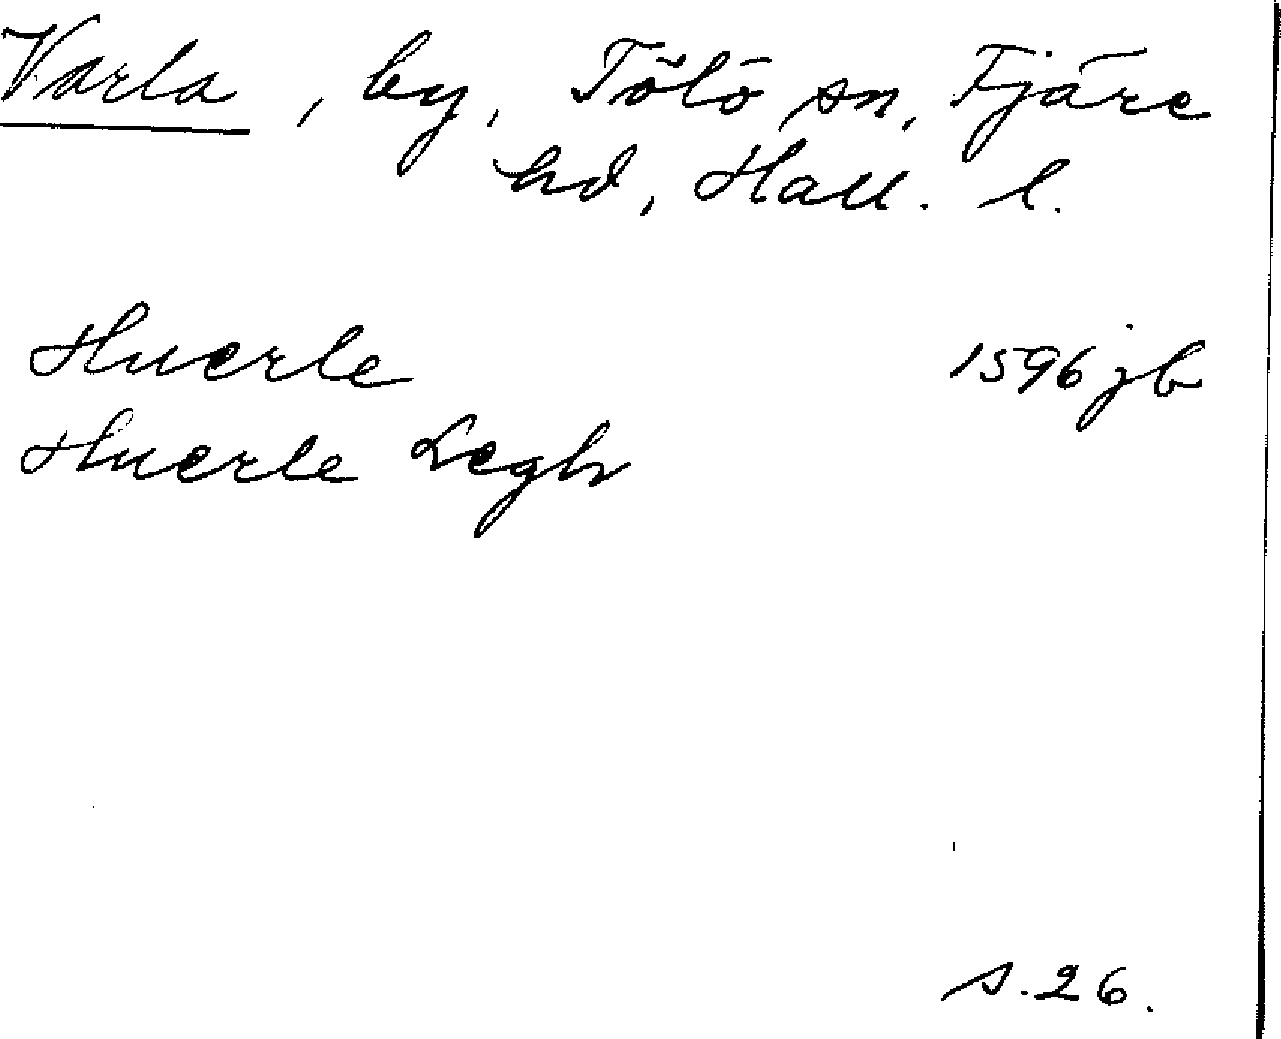 Varla, by, Tölö sn, Fjäre
hd, Hall. l.
Huerle 1596 jb
Huerle Legh
s. 26.